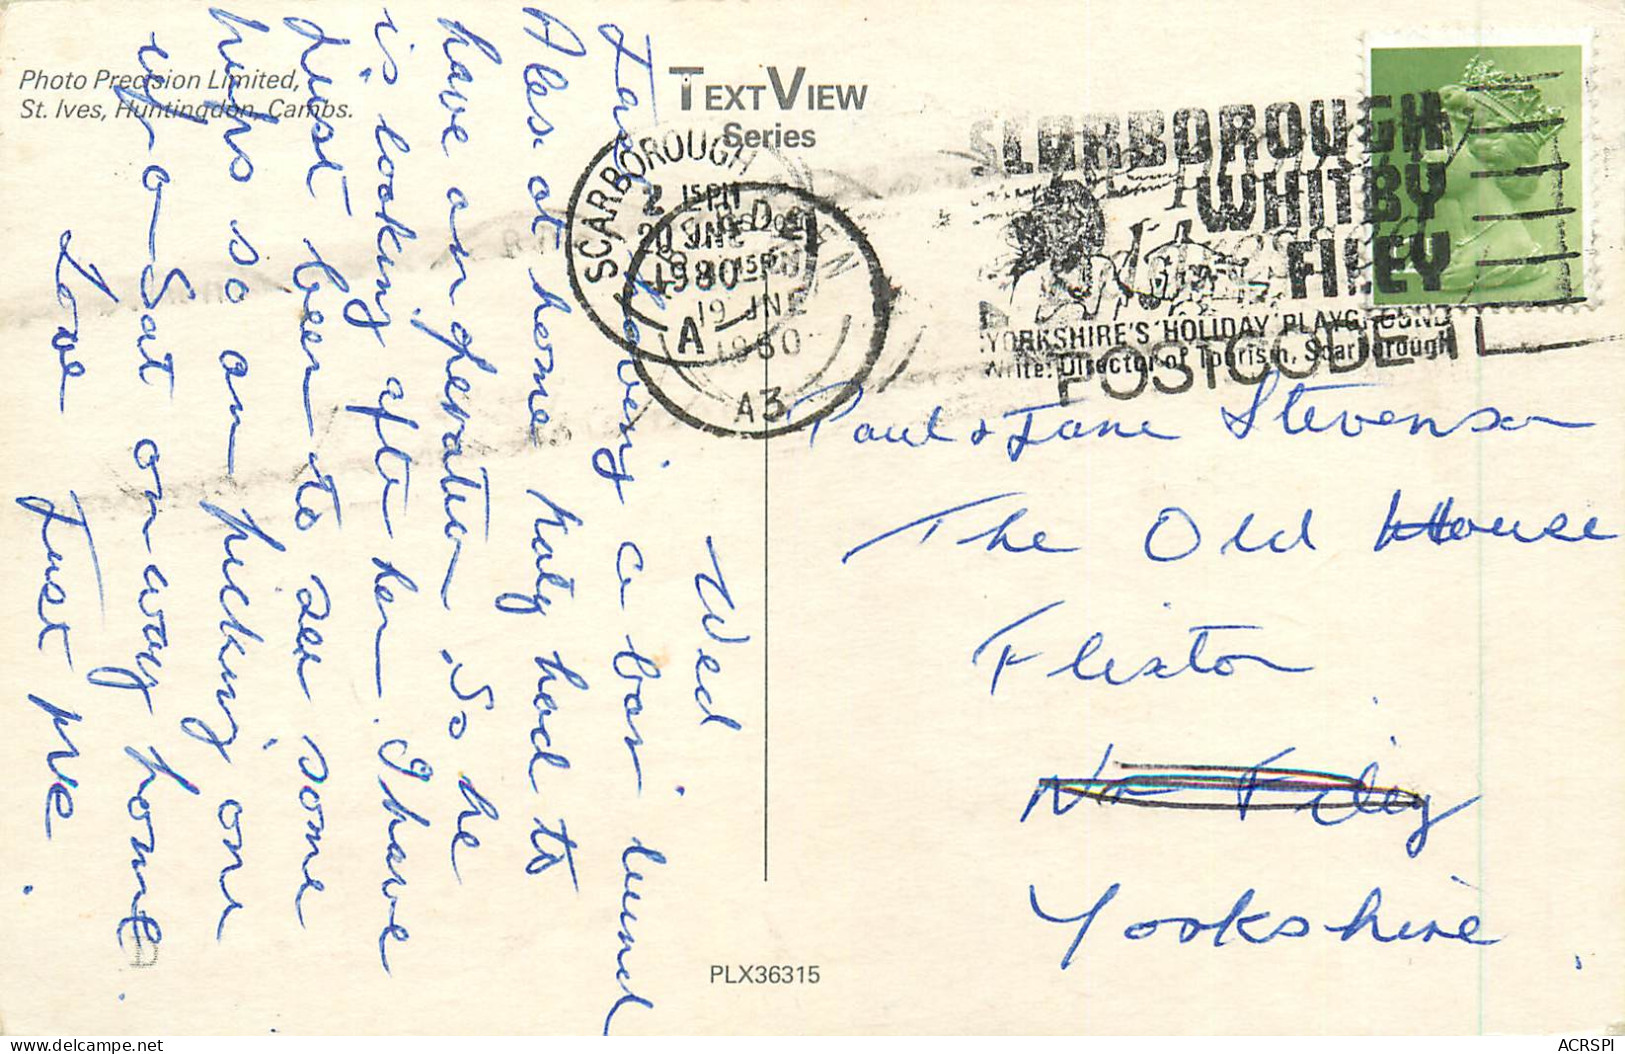 Photo Precision Limited,
St. Ives, Huntingdon, Cambs.
TEXT VIEW
Series
SCARBOROUGH
2 15PM
20 JNE
1980
A
ABERDEEN
19 JNE
1980
A3
SCARBOROUGH
WHITBY
FILEY
YORKSHIRE'S HOLIDAY PLAYGROUND
Write: Director of Tourism, Scarborough
POSTCODE
Wed
Jane having a bar lunch
Alas at home Katy had to
have an operation so he
is looking after her. I have
just been to see some
pups so am picking one
up a Sat on way home.
Love
Just me.
Paul & Jane Stevenson
The Old House
Flixton
Nr Filey
Yorkshire.
PLX36315
delcampe.net
ACRSPI